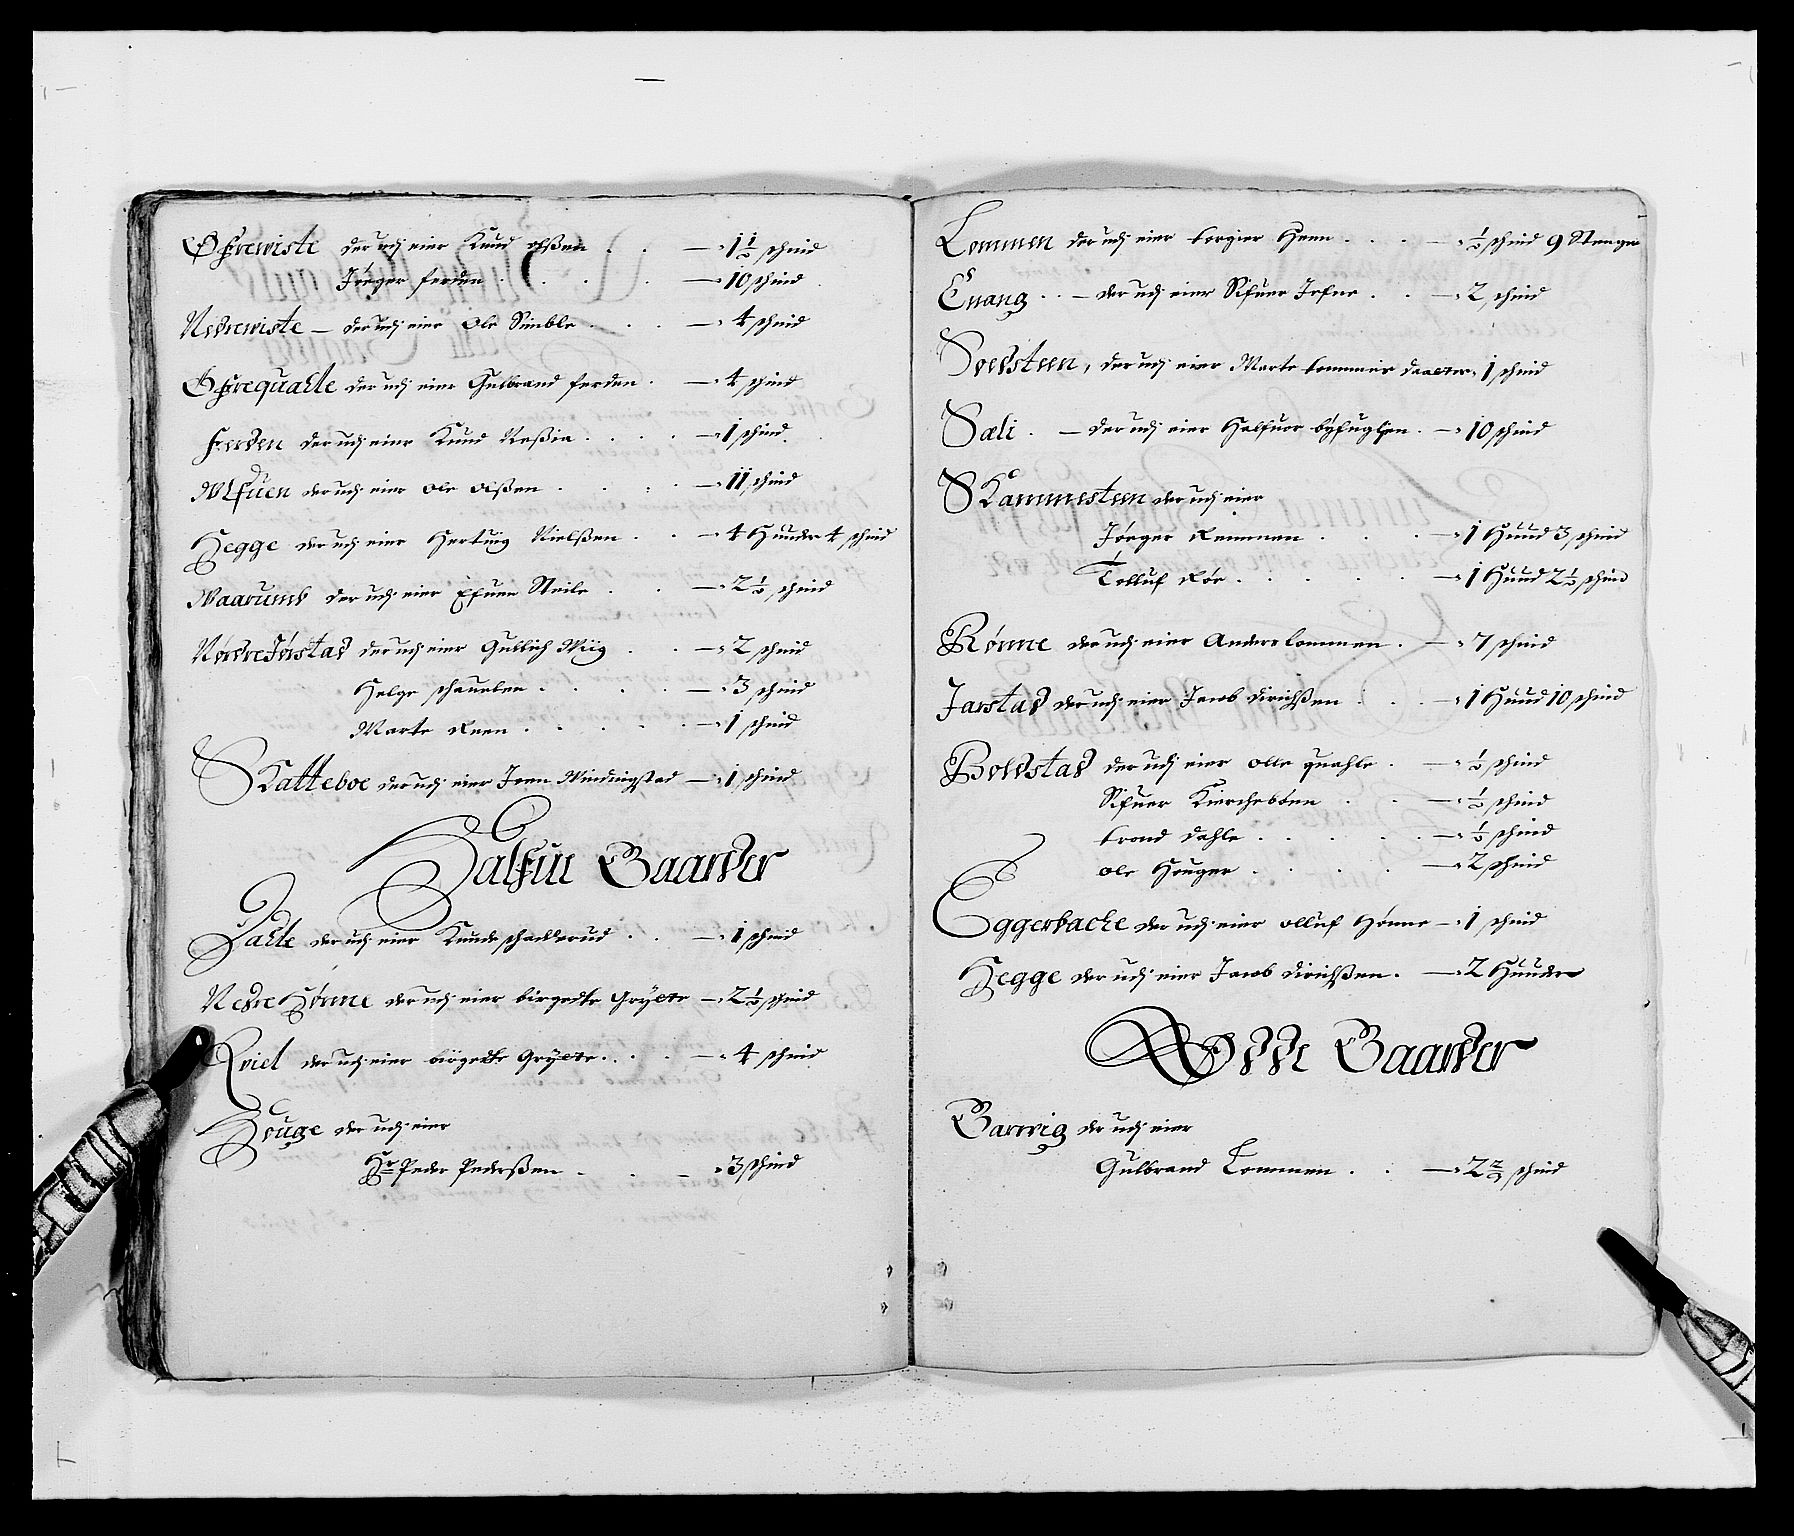 Øfrewiste der udj eier Knud olßen . . — 1½ schind
Jørger ferden . . . . — 10 schind
Nedrewiste — der udj eier Ole Simble . . . — 4 schind
Øfrequalle der udj eier Gulbrand ferden . — 4 schind
Ferden der udj eier Knud Roßia . . . . — 1 schind
Ulfuen der udj eier ole olßen . . . . — 11 schind
Hegge der udj eier Hertuig Nielßen . . — 4 Hunder 4 schind
Waarumb der udj eier Efuen Neile . . — 2½ schind
Nordre Jørstad der udj eier Gullich Miig . . — 2 schind
Helge schaueben . . . . — 3 schind
Marte Reen . . . . . — 1 schind
Katteboe der udj eier Joen Windingstad — 1 schind
Halfue Gaarder
Dalle der udj eier Knud schadkerud . . — 1 schind
Nedre Hørme der udj eier birgedte Gryete — 2½ schind
Qviel der udj eier birgedte Gryete . . . — 4 schind
Houge der udj eier
Hr Peder Pederßen . . . — 3 schind
Lommen der udj eier torgier Henn . . . — ½ schind 9 Stenger
Enang . . — der udj eier Sifuer Jofne . . — 2 schind
Soedsteen, der udj eier Marte lommen daatter 1 schind
Sæli . — der udj eier Halfuor byfuglien . — 10 schind
Kammesteen der udj eier
Jørger Remmen . . . . — 1 Hund 3 schind
Tolluf Røe . . . . . — 1 Hund 2½ schind
Rønne der udj eier Anders lommen . — 7 schind
Jarstad der udj eier Jacob Dirichßen . . — 1 Hund 10 schind
Boldstad der udj eier olle quahle . — ½ schind
Sifuer Kirckebøen . . — ½ schind
trond dahle . . . . — ½ schind
ole Houger . . . . — 2 schind
Eggerbache der udj eier olluf Hønne — 1 schind
Hegge der udj eier Jacob dirichßen . — 2 Hunder
Ødde Gaarder
Garwig der udj eier
Gulbrand Lommen . . — 2⅔ schind